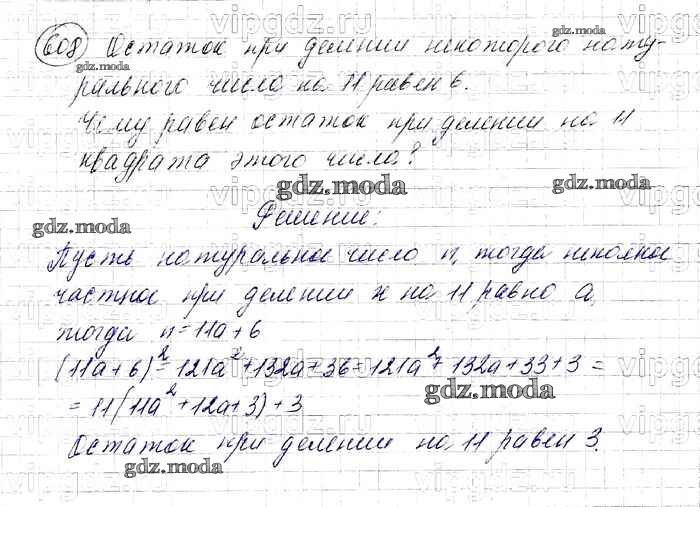 608 Остаток при делении некоторого нату-
рального число на 11 равен 6.
Чему равен остаток при делении на 11
квадрата этого числа?
Решение:
Пусть натуральное число n, тогда неполное
частное при делении n на 11 равно a,
тогда n=11a+6
(11a+6)²=121a²+132a+36=121a²+132a+33+3=
=11(11a²+12a+3)+3
Остаток при делении на 11 равен 3.
gdz.moda
gdz.moda
gdz.moda
gdz.moda
gdz.moda
gdz.moda
gdz.moda